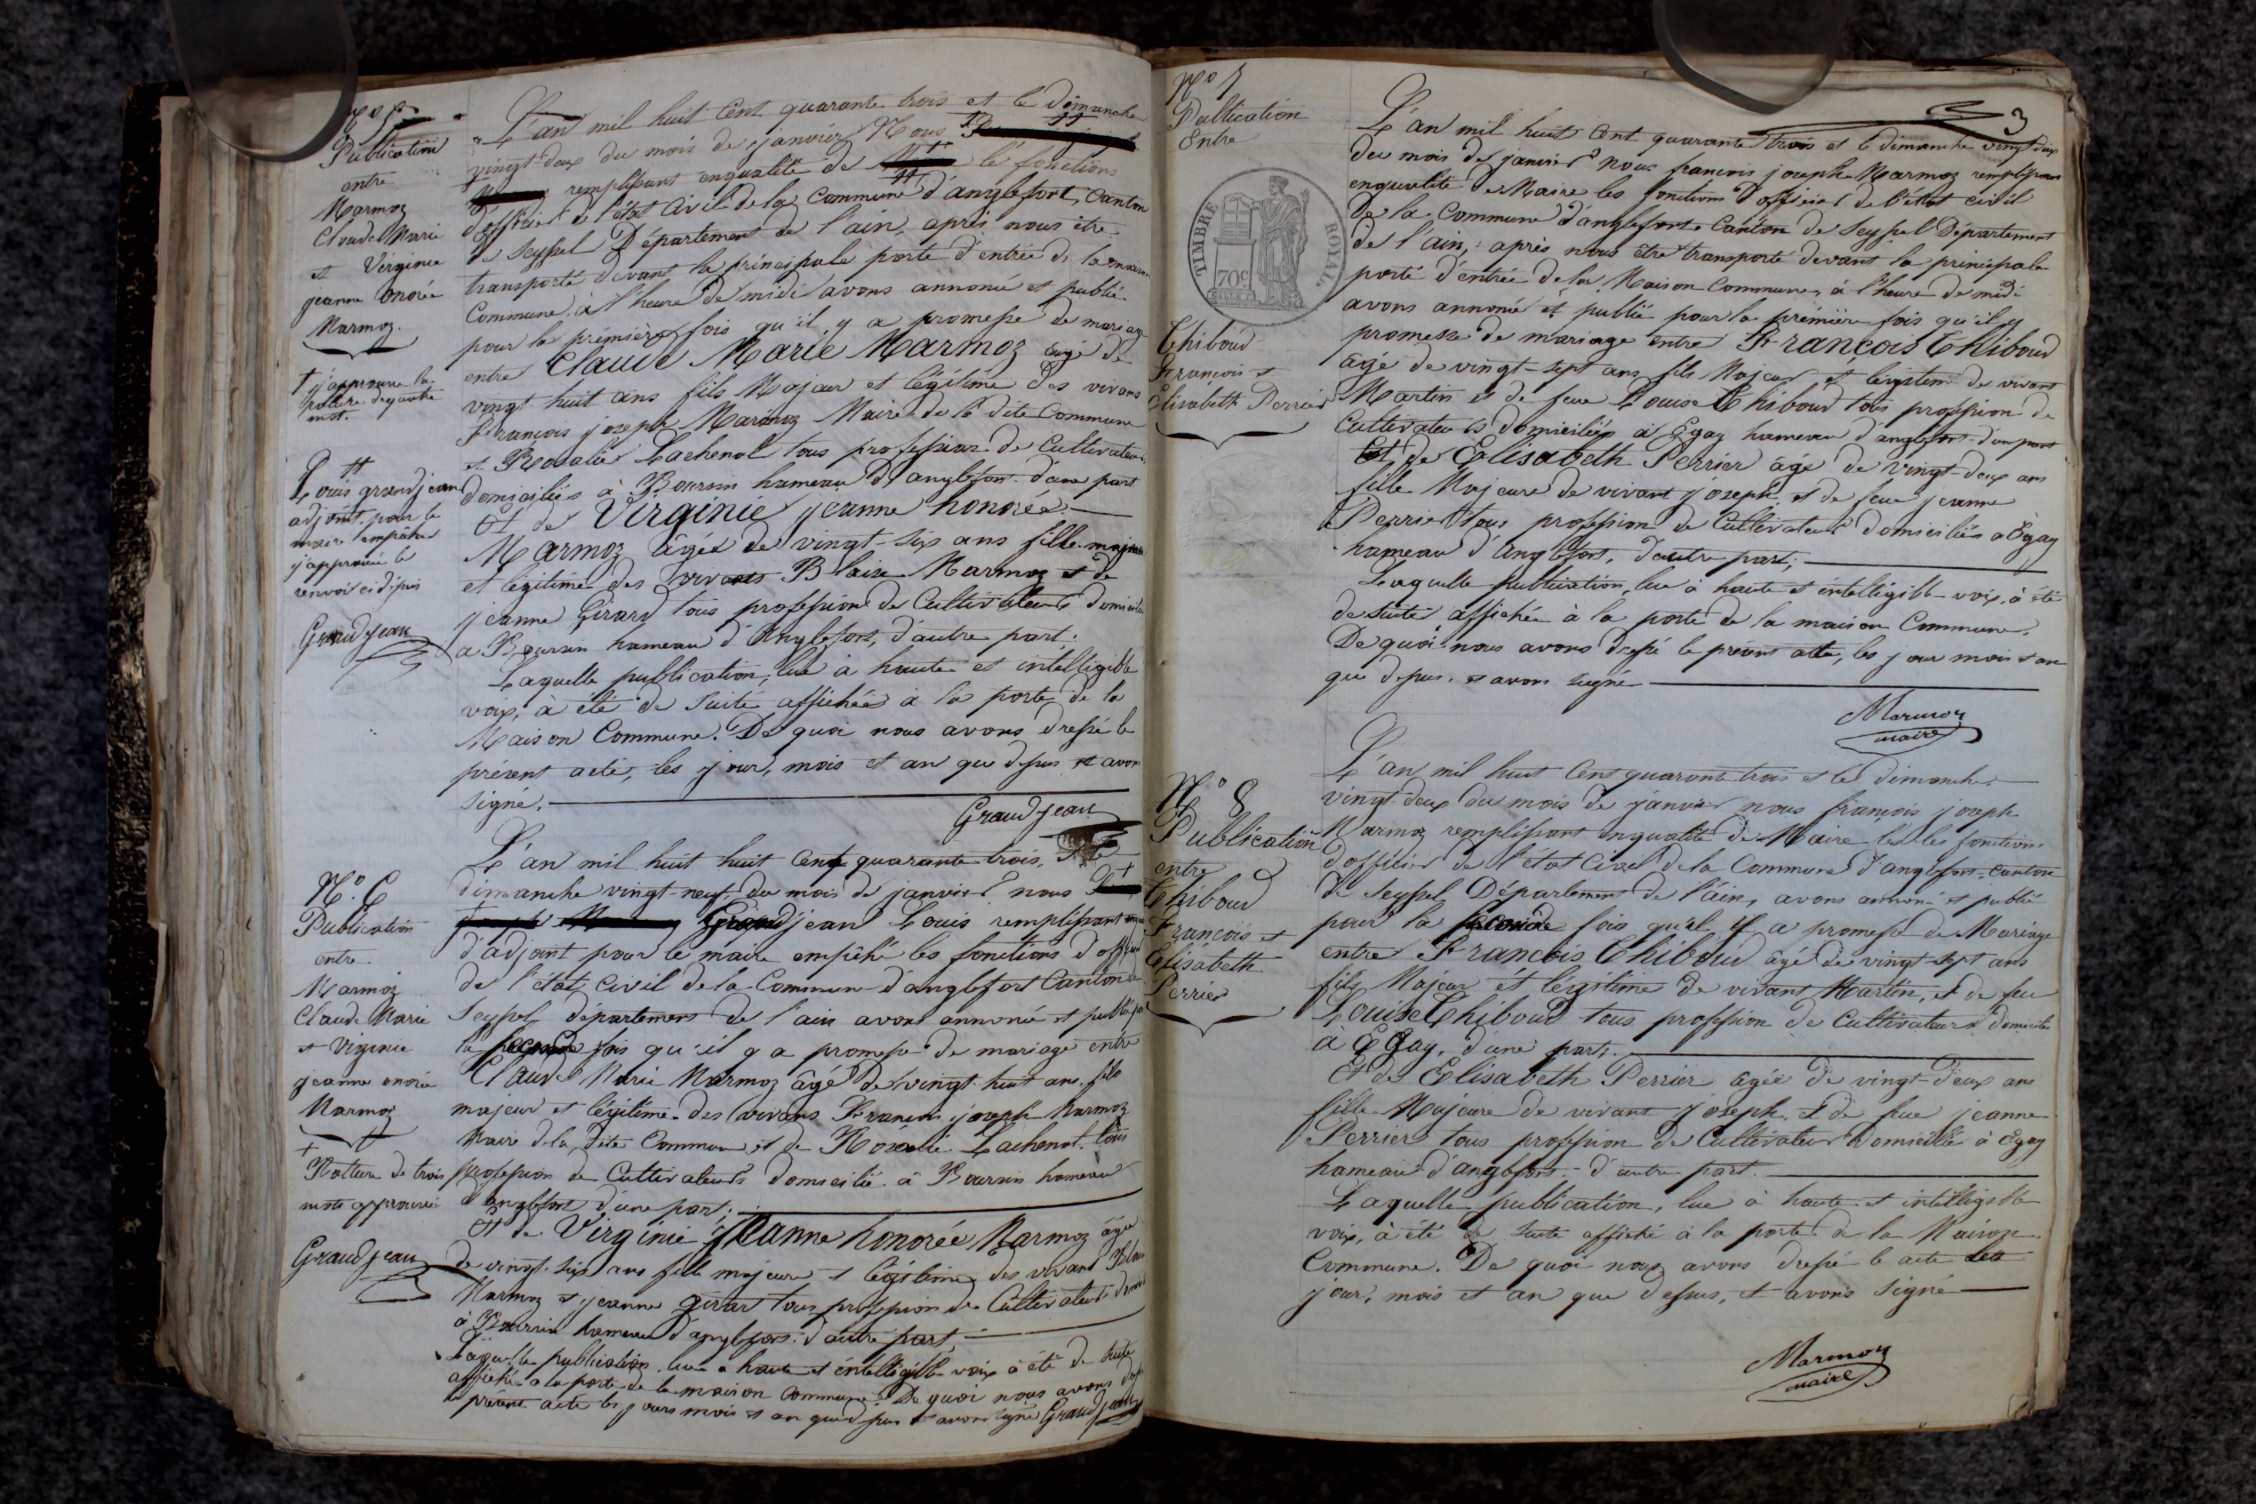 Publication
entre
Marmoz
Claude Marie
et Virginie
jeanne onorée
Marmoz.
L'an mil huit Cent quarante trois et le dimanche
vingt-deux du mois de janvier Nous
remplissant enqualité de les fonctions
d'officier de l'état Civil de la Commune d'anglefort, Canton
de Seyssel Département de l'ain, après nous être
transporté devant la principale porte d'entrée de la maison
Commune, à l'heure de midi avons annoncé et publié
pour la première fois qu'il y a promesse de mariage
entre Claude Marie Marmoz agé de
vingt huit ans fils Majeur et légitime des vivans
François joseph Marmoz Maire de la dite Commune
et Rosalie Lachenal tous profession de Cultivateurs,
domiciliés à Boursin hameau d'anglefort d'une part
Et de Virginie jeanne honorée
Marmoz âgée de vingt-six ans fille majeure
et légitime des vivants Blaise Marmoz et de
jeanne Girard tous profession de Cultivateurs domiciliés
a Boursin hameau d'Anglefort, d'autre part.
Laquelle publication, lue à haute et intelligible
voix, à été de suite affichée à la porte de la
Maison Commune. De quoi nous avons dressé le
présent acte, les jour, mois et an que dessus et avons
signé.
Grandjean
† j'approuve la
rature de quatre
mot.
†† Louis grandjean
adjoint pour le
maire empêché
j'approuvé le
renvoi ci dessus
Grandjean
N.o 6
Publication
entre
Marmoz
Claude Marie
et Virginie
jeanne onorée
Marmoz
L'an mil huit huit cent quarante trois, et le
dimanche vingt-neuf du mois de janvier nous
Grandjean Louis remplissant
d'adjoint pour le maire empêché les fonctions d'officier
de l'état civil de la Commune d'anglefort Canton de
Seyssel département de l'ain avons annoncé et publié pour
la seconde fois qu'il y a promesse de mariage entre
Claude Marie Marmoz âgé de vingt-huit ans, fils
majeur et légitime des vivans François joseph Marmoz
Maire de la dite Commune et de Rosalie Lachenal tous
profession de Cultivateurs domicilié à Boursin hameau
d'anglefort d'une part;
Et de Virginie jeanne honorée Marmoz âgée
de vingt-six ans fille majeure et légitime des vivans Blaise
Marmoz et jeanne girard tous profession de Cultivateurs
à Boursin hameau d'anglefort d'autre part,
Laquelle publication lue a haute et intelligible voix à été de suite
affiché a la porte de la maison commune. De quoi nous avons
le présent acte les jours mois et an que dessus et avons signé Grandjean
†
Rature de trois
mots approuvée
Grandjean
3
N.o 7
Publication
Entre
TIMBRE ROYAL
70c
Thiboud
François et
Elisabeth Perrier
L'an mil huit Cent quarante trois et le dimanche vingt-deux
du mois de janvier nous françois joseph Marmoz remplissant
enqualité de Maire les fonctions d'officier de l'état civil
De la Commune d'anglefort Canton de Seyssel Département
de l'ain, après nous être transporté devant la principale
porte d'entrée de la Maison Commune, à l'heure de midi
avons annoncé et publié pour la première fois qu'il y
promesse de mariage entre François Thiboud
agé de vingt-sept ans fils Majeur et légitime de vivant
Martin et de feue Louise Thiboud tous profession de
Cultivateurs domiciliés à Egay hameau d'anglefort d'une part
Et de Elisabeth Perrier âgé de vingt-deux ans
fille Majeure de vivant joseph et de feue jeanne
Perrier tous profession de Cultivateur domiciliés à Egay
hameau d'anglefort, d'autre part;
Laquelle publication, lue à haute et intelligible voix, à été
de suite affichée à la porte de la maison Commune.
De quoi nous avons dressé le présent acte, les jour mois et an
que dessus, et avons signé
Marmoz
maire
N.o 8
Publication
entre
Thiboud
François et
Elisabeth
Perrier
L'an mil huit Cent quarante trois et le dimanche
vingt-deux du mois de janvier nous françois joseph
Marmoz remplissant enqualité de Maire les les fonctions
d'officier de l'état Civil de la Commune d'anglefort, canton
de Seyssel Département de l'ain, avons annoncé et publié
pour la seconde fois qu'il y a promesse de Mariage
entre François Thiboud agé de vingt-sept ans
fils Majeur et légitime de vivant Martin, et de feu
Louise Thiboud tous profession de Cultivateurs domiciliés
à Egay, d'une part;
Et de Elisabeth Perrier agée de vingt-deux ans
fille Majeure de vivant joseph et de feue jeanne
Perrier tous profession de Cultivateur Domiciliés à Egay
hameau d'anglefort d'autre part
Laquelle publication, lue à haute et intelligible
voix, à été de suite affiché à la porte de la Maison
Commune. De quoi nous avons dressé le acte
jour, mois et an que dessus, et avons signé
Marmoz
maire